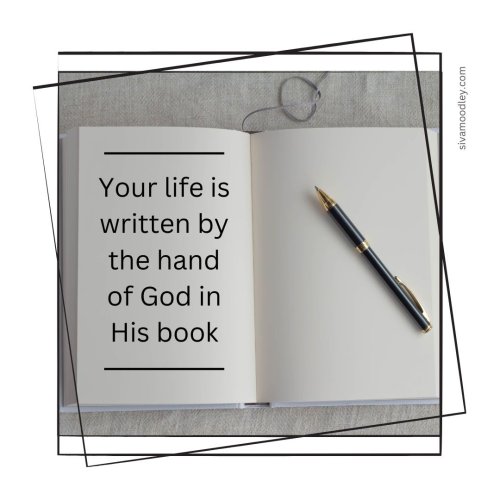 Your life is
written by
the hand
of God in
His book
sivamoodley.com